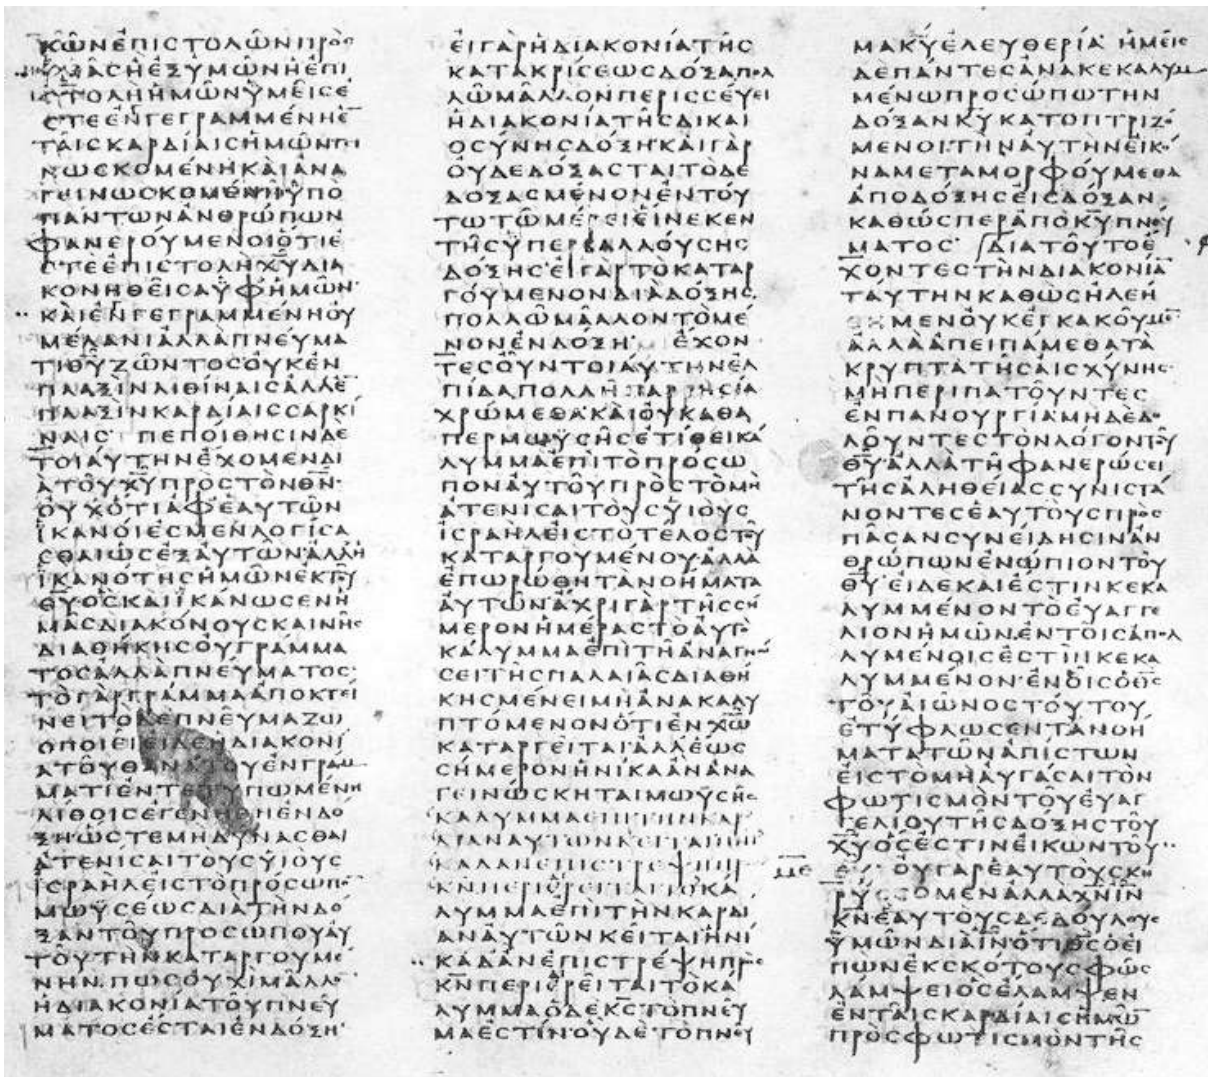 ΚΩΝΕΠΙΣΤΟΛΩΝΠΡΟΣ
ΥΜΑΣΗΕΞΥΜΩΝΗΕΠΙ
ΣΤΟΛΗΗΜΩΝΥΜΕΙΣΕ
ΣΤΕΕΝΓΕΓΡΑΜΜΕΝΗΕ̅
ΤΑΙΣΚΑΡΔΙΑΙΣΗΜΩΝΓΙ
ΝΩΣΚΟΜΕΝΗΚΑΙΑΝΑ
ΓΕΙΝΩΣΚΟΜΕΝΗΫΠΟ
ΠΑΝΤΩΝΑΝΘΡΩΠΩΝ
ΦΑΝΕΡΟΥΜΕΝΟΙΟΤΙΕ
ΣΤΕΕΠΙΣΤΟΛΗΧ̅Υ̅ΔΙΑ
ΚΟΝΗΘΕΙΣΑΫΦΗΜΩΝ·
ΚΑΙΕΝΓΕΓΡΑΜΜΕΝΗΟΥ
ΜΕΛΑΝΙΑΛΛΑΠΝΕΥΜΑ
ΤΙΘ̅Υ̅ΖΩΝΤΟΣΟΥΚΕΝ
ΠΛΑΞΙΝΛΙΘΙΝΑΙΣΑΛΛΕ̅
ΠΛΑΞΙΝΚΑΡΔΙΑΙΣΣΑΡΚΙ
ΝΑΙΣ ΠΕΠΟΙΘΗΣΙΝΔΕ
ΤΟΙΑΥΤΗΝΕΧΟΜΕΝΔΙ
ΑΤΟΥΧ̅Υ̅ΠΡΟΣΤΟΝΘ̅Ν̅·
ΟΥΧΟΤΙΑΦΕΑΥΤΩΝ
ΪΚΑΝΟΙΕΣΜΕΝΛΟΓΙΣΑ
ΣΘΑΙΩΣΕΞΑΥΤΩΝΑΛΛΗ
ΪΚΑΝΟΤΗΣΗΜΩΝΕΚΤΟΥ
Θ̅Υ̅ΟΣΚΑΙΪΚΑΝΩΣΕΝΗ
ΜΑΣΔΙΑΚΟΝΟΥΣΚΑΙΝΗΣ
ΔΙΑΘΗΚΗΣΟΥΓΡΑΜΜΑ
ΤΟΣΑΛΛΑΠΝΕΥΜΑΤΟΣ·
ΤΟΓΑΡΓΡΑΜΜΑΑΠΟΚΤΕΙ
ΝΕΙΤΟΔΕΠΝΕΥΜΑΖΩ
ΟΠΟΙΕΙΕΙΔΕΗΔΙΑΚΟΝΙ
ΑΤΟΥΘΑΝΑΤΟΥΕΝΓΡΑΜ
ΜΑΤΙΕΝΤΕΤΥΠΩΜΕΝΗ
ΛΙΘΟΙΣΕΓΕΝΗΘΗΕΝΔΟ
ΞΗΩΣΤΕΜΗΔΥΝΑΣΘΑΙ
ΑΤΕΝΙΣΑΙΤΟΥΣΥΙΟΥΣ
ΪΣΡΑΗΛΕΙΣΤΟΠΡΟΣΩΠΟ̅
ΜΩΫΣΕΩΣΔΙΑΤΗΝΔΟ
ΞΑΝΤΟΥΠΡΟΣΩΠΟΥΑΥ
ΤΟΥΤΗΝΚΑΤΑΡΓΟΥΜΕ
ΝΗΝ·ΠΩΣΟΥΧΙΜΑΛΛΟ
ΗΔΙΑΚΟΝΙΑΤΟΥΠΝΕΥ
ΜΑΤΟΣΕΣΤΑΙΕΝΔΟΞΗ·
ΕΙΓΑΡΗΔΙΑΚΟΝΙΑΤΗΣ
ΚΑΤΑΚΡΙΣΕΩΣΔΟΞΑΠΟΛ
ΛΩΜΑΛΛΟΝΠΕΡΙΣΣΕΥΕΙ
ΗΔΙΑΚΟΝΙΑΤΗΣΔΙΚΑΙ
ΟΣΥΝΗΣΔΟΞΗ·ΚΑΙΓΑΡ
ΟΥΔΕΔΟΞΑΣΤΑΙΤΟΔΕ
ΔΟΞΑΣΜΕΝΟΝΕΝΤΟΥ
ΤΩΤΩΜΕΡΕΙΕΙΝΕΚΕΝ
ΤΗΣΥΠΕΡΒΑΛΛΟΥΣΗΣ
ΔΟΞΗΣ·ΕΙΓΑΡΤΟΚΑΤΑΡ
ΓΟΥΜΕΝΟΝΔΙΑΔΟΞΗΣ
ΠΟΛΛΩΜΑΛΛΟΝΤΟΜΕ
ΝΟΝΕΝΔΟΞΗ· ΕΧΟΝ
ΤΕΣΟΥΝΤΟΙΑΥΤΗΝΕΛ
ΠΙΔΑΠΟΛΛΗΠΑΡΡΗΣΙΑ
ΧΡΩΜΕΘΑ·ΚΑΙΟΥΚΑΘΑ
ΠΕΡΜΩΫΣΗΣΕΤΙΘΕΙΚΑ
ΛΥΜΜΑΕΠΙΤΟΠΡΟΣΩ
ΠΟΝΑΥΤΟΥΠΡΟΣΤΟΜΗ
ΑΤΕΝΙΣΑΙΤΟΥΣΥΙΟΥΣ
ΙΣΡΑΗΛΕΙΣΤΟΤΕΛΟΣΤΟΥ
ΚΑΤΑΡΓΟΥΜΕΝΟΥ·ΑΛΛΑ
ΕΠΩΡΩΘΗΤΑΝΟΗΜΑΤΑ
ΑΥΤΩΝΑΧΡΙΓΑΡΤΗΣΣΗ
ΜΕΡΟΝΗΜΕΡΑΣΤΟΑΥΤΟ
ΚΑΛΥΜΜΑΕΠΙΤΗΑΝΑΓΝΩ
ΣΕΙΤΗΣΠΑΛΑΙΑΣΔΙΑΘΗ
ΚΗΣΜΕΝΕΙΜΗΑΝΑΚΑΛΥ
ΠΤΟΜΕΝΟΝΟΤΙΕΝΧ̅Ω̅
ΚΑΤΑΡΓΕΙΤΑΙΑΛΛΕΩΣ
ΣΗΜΕΡΟΝΗΝΙΚΑΑΝΑΝΑ
ΓΕΙΝΩΣΚΗΤΑΙΜΩΫΣΗΣ
ΚΑΛΥΜΜΑΕΠΙΤΗΝΚΑΡ
ΔΙΑΝΑΥΤΩΝΚΕΙΤΑΙΗΝΙ
ΚΑΔΑΝΕΠΙΣΤΡΕΨΗΠΡ
Κ̅Ν̅ΠΕΡΙΕΡΕΙΤΑΙΤΟΚΑ
ΛΥΜΜΑΕΠΙΤΗΝΚΑΡΔΙ
ΑΝΑΥΤΩΝΚΕΙΤΑΙΗΝΙ
ΚΑΔΑΝΕΠΙΣΤΡΕΨΗΠΡΟΣ
Κ̅Ν̅ΠΕΡΙΕΡΕΙΤΑΙΤΟΚΑ
ΛΥΜΜΑΟΔΕΚ̅Σ̅ΤΟΠΝΕΥ
ΜΑΕΣΤΙΝ·ΟΥΔΕΤΟΠΝΕΥ
ΜΑΚ̅Υ̅ΕΛΕΥΘΕΡΙΑ· ΗΜΕΙΣ
ΔΕΠΑΝΤΕΣΑΝΑΚΕΚΑΛΥΜ
ΜΕΝΩΠΡΟΣΩΠΩΤΗΝ
ΔΟΞΑΝΚ̅Υ̅ΚΑΤΟΠΤΡΙΖΟ
ΜΕΝΟΙΤΗΝΑΥΤΗΝΕΙΚΟ
ΝΑΜΕΤΑΜΟΡΦΟΥΜΕΘΑ
ΑΠΟΔΟΞΗΣΕΙΣΔΟΞΑΝ
ΚΑΘΩΣΠΕΡΑΠΟΚ̅Υ̅ΠΝΕΥ
ΜΑΤΟΣ· ΔΙΑΤΟΥΤΟΕ
ΧΟΝΤΕΣΤΗΝΔΙΑΚΟΝΙΑ̅
ΤΑΥΤΗΝΚΑΘΩΣΗΛΕΗ
ΘΗΜΕΝΟΥΚΕΓΚΑΚΟΥΜΕ̅
ΑΛΛΑΑΠΕΙΠΑΜΕΘΑΤΑ
ΚΡΥΠΤΑΤΗΣΑΙΣΧΥΝΗΣ
ΜΗΠΕΡΙΠΑΤΟΥΝΤΕΣ
ΕΝΠΑΝΟΥΡΓΙΑΜΗΔΕΔΟ
ΛΟΥΝΤΕΣΤΟΝΛΟΓΟΝΤΟΥ
Θ̅Υ̅ΑΛΛΑΤΗΦΑΝΕΡΩΣΕΙ
ΤΗΣΑΛΗΘΕΙΑΣΣΥΝΙΣΤΑ
ΝΟΝΤΕΣΕΑΥΤΟΥΣΠΡΟΣ
ΠΑΣΑΝΣΥΝΕΙΔΗΣΙΝΑΝ
ΘΡΩΠΩΝΕΝΩΠΙΟΝΤΟΥ
Θ̅Υ̅·ΕΙΔΕΚΑΙΕΣΤΙΝΚΕΚΑ
ΛΥΜΜΕΝΟΝΤΟΕΥΑΓΓΕ
ΛΙΟΝΗΜΩΝ·ΕΝΤΟΙΣΑΠΟΛ
ΛΥΜΕΝΟΙΣΕΣΤΙΝΚΕΚΑ
ΛΥΜΜΕΝΟΝ·ΕΝΟΙΣΟΘ̅Σ̅
ΤΟΥΑΙΩΝΟΣΤΟΥΤΟΥ
ΕΤΥΦΛΩΣΕΝΤΑΝΟΗ
ΜΑΤΑΤΩΝΑΠΙΣΤΩΝ
ΕΙΣΤΟΜΗΑΥΓΑΣΑΙΤΟΝ
ΦΩΤΙΣΜΟΝΤΟΥΕΥΑΓ
ΓΕΛΙΟΥΤΗΣΔΟΞΗΣΤΟΥ
Χ̅Υ̅ΟΣΕΣΤΙΝΕΙΚΩΝΤΟΥ
Μ̅Ε̅ ΟΥΓΑΡΕΑΥΤΟΥΣΚΗ
ΡΥΣΣΟΜΕΝΑΛΛΑΧ̅Ν̅Ι̅Ν̅
Κ̅Ν̅ΕΑΥΤΟΥΣΔΕΔΟΥΛΟΥΣ
ΥΜΩΝΔΙΑΙ̅Ν̅ΟΤΙΟΘ̅Σ̅ΟΕΙ
ΠΩΝΕΚΣΚΟΤΟΥΣΦΩΣ
ΛΑΜΨΕΙΟΣΕΛΑΜΨΕΝ
ΕΝΤΑΙΣΚΑΡΔΙΑΙΣΗΜΩ̅
ΠΡΟΣΦΩΤΙΣΜΟΝΤΗΣ